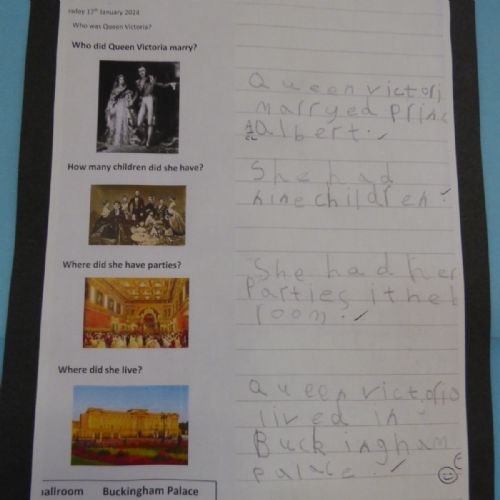 rsday 17th January 2024
Who was Queen Victoria?
Who did Queen Victoria marry?
Queen victori
marryed princ
albert.
How many children did she have?
She had
nine children.
Where did she have parties?
She had her
Parties ithe b
room.
Where did she live?
Queen victoria
lived in
Buckingham
palace.
allroom Buckingham Palace